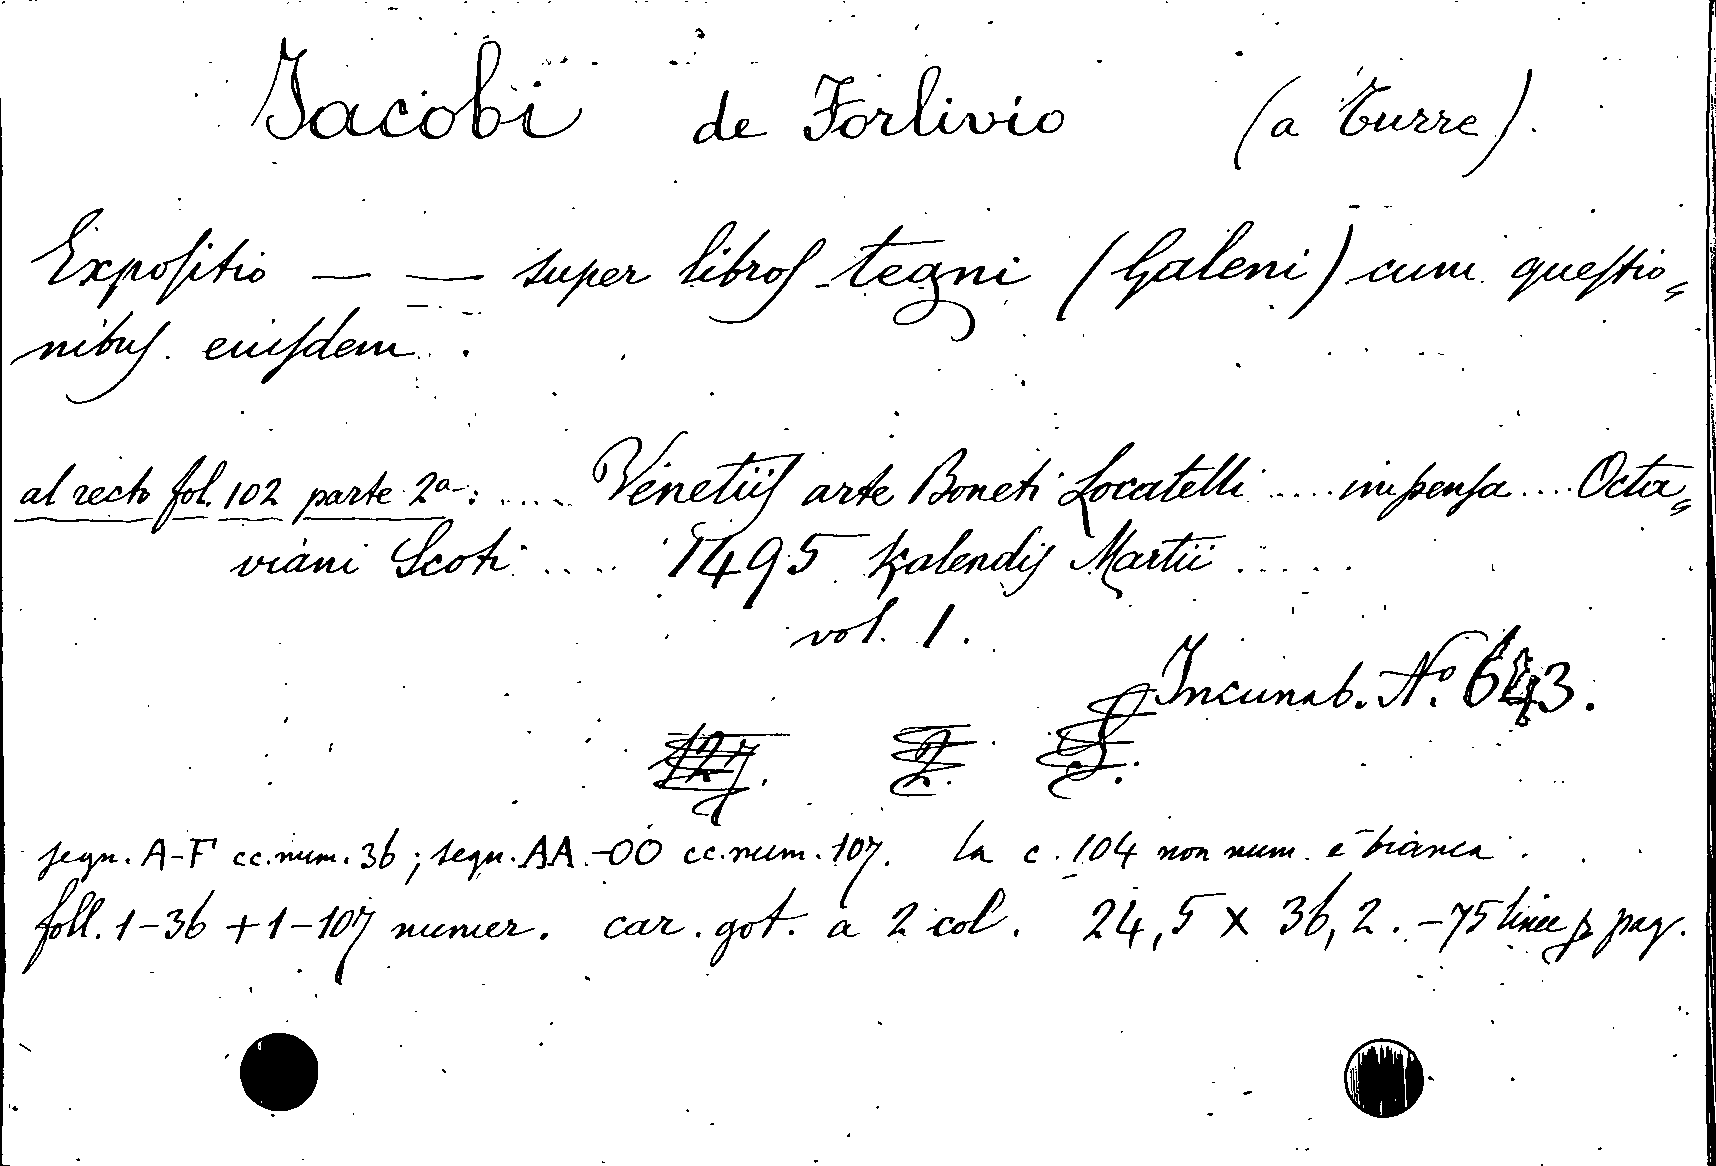 Jacobi de Forlivio (a Turre).
Expoſitio — — super libroſ tegni (Galeni) cum queſtio„
nibuſ. euiſdem.
al recto fol. 102 parte 2a: .... Venetiiſ arte Boneti Locatelli .... impenſa .... Octa„
viani Scoti .... 1495 Kalendiſ Martii .....
vol. 1.
Incunab. No. 643.
127. 2. S.
segn. A-F cc. num. 36; segn. AA-OO cc. num. 107. la c. 104 non num. è bianca.
foll. 1-36 + 1-107 numer. car. got. a 2 col. 24,5 x 36,2. - 75 linee p pag.